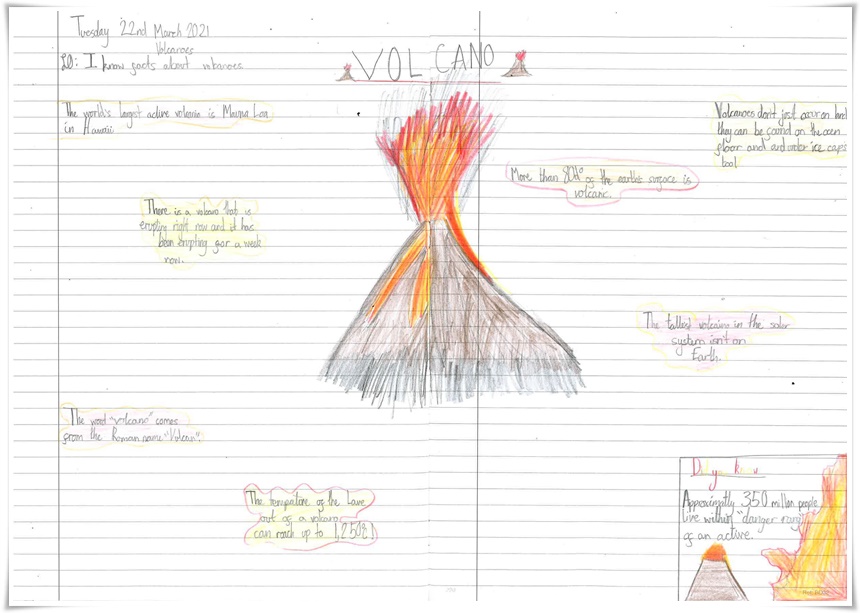 Tuesday 22nd March 2021
Volcanoes
LO: I know facts about volcanoes
VOLCANO
The world's largest active volcano is Mauna Loa
in Hawaii
Volcanoes don't just occur on land
they can be found on the ocean
floor and and under ice caps
too!
More than 80% of the earth's surface is
volcanic.
There is a volcano that is
erupting right now and it has
been erupting for a week
now.
The tallest volcano in the solar
system isn't on
Earth.
The word "volcano" comes
from the Roman name "Vulcan".
The temperature of the Lava
out of a volcano
can reach up to 1,250
Did you know
350 million people
live within "danger range"
of an active.